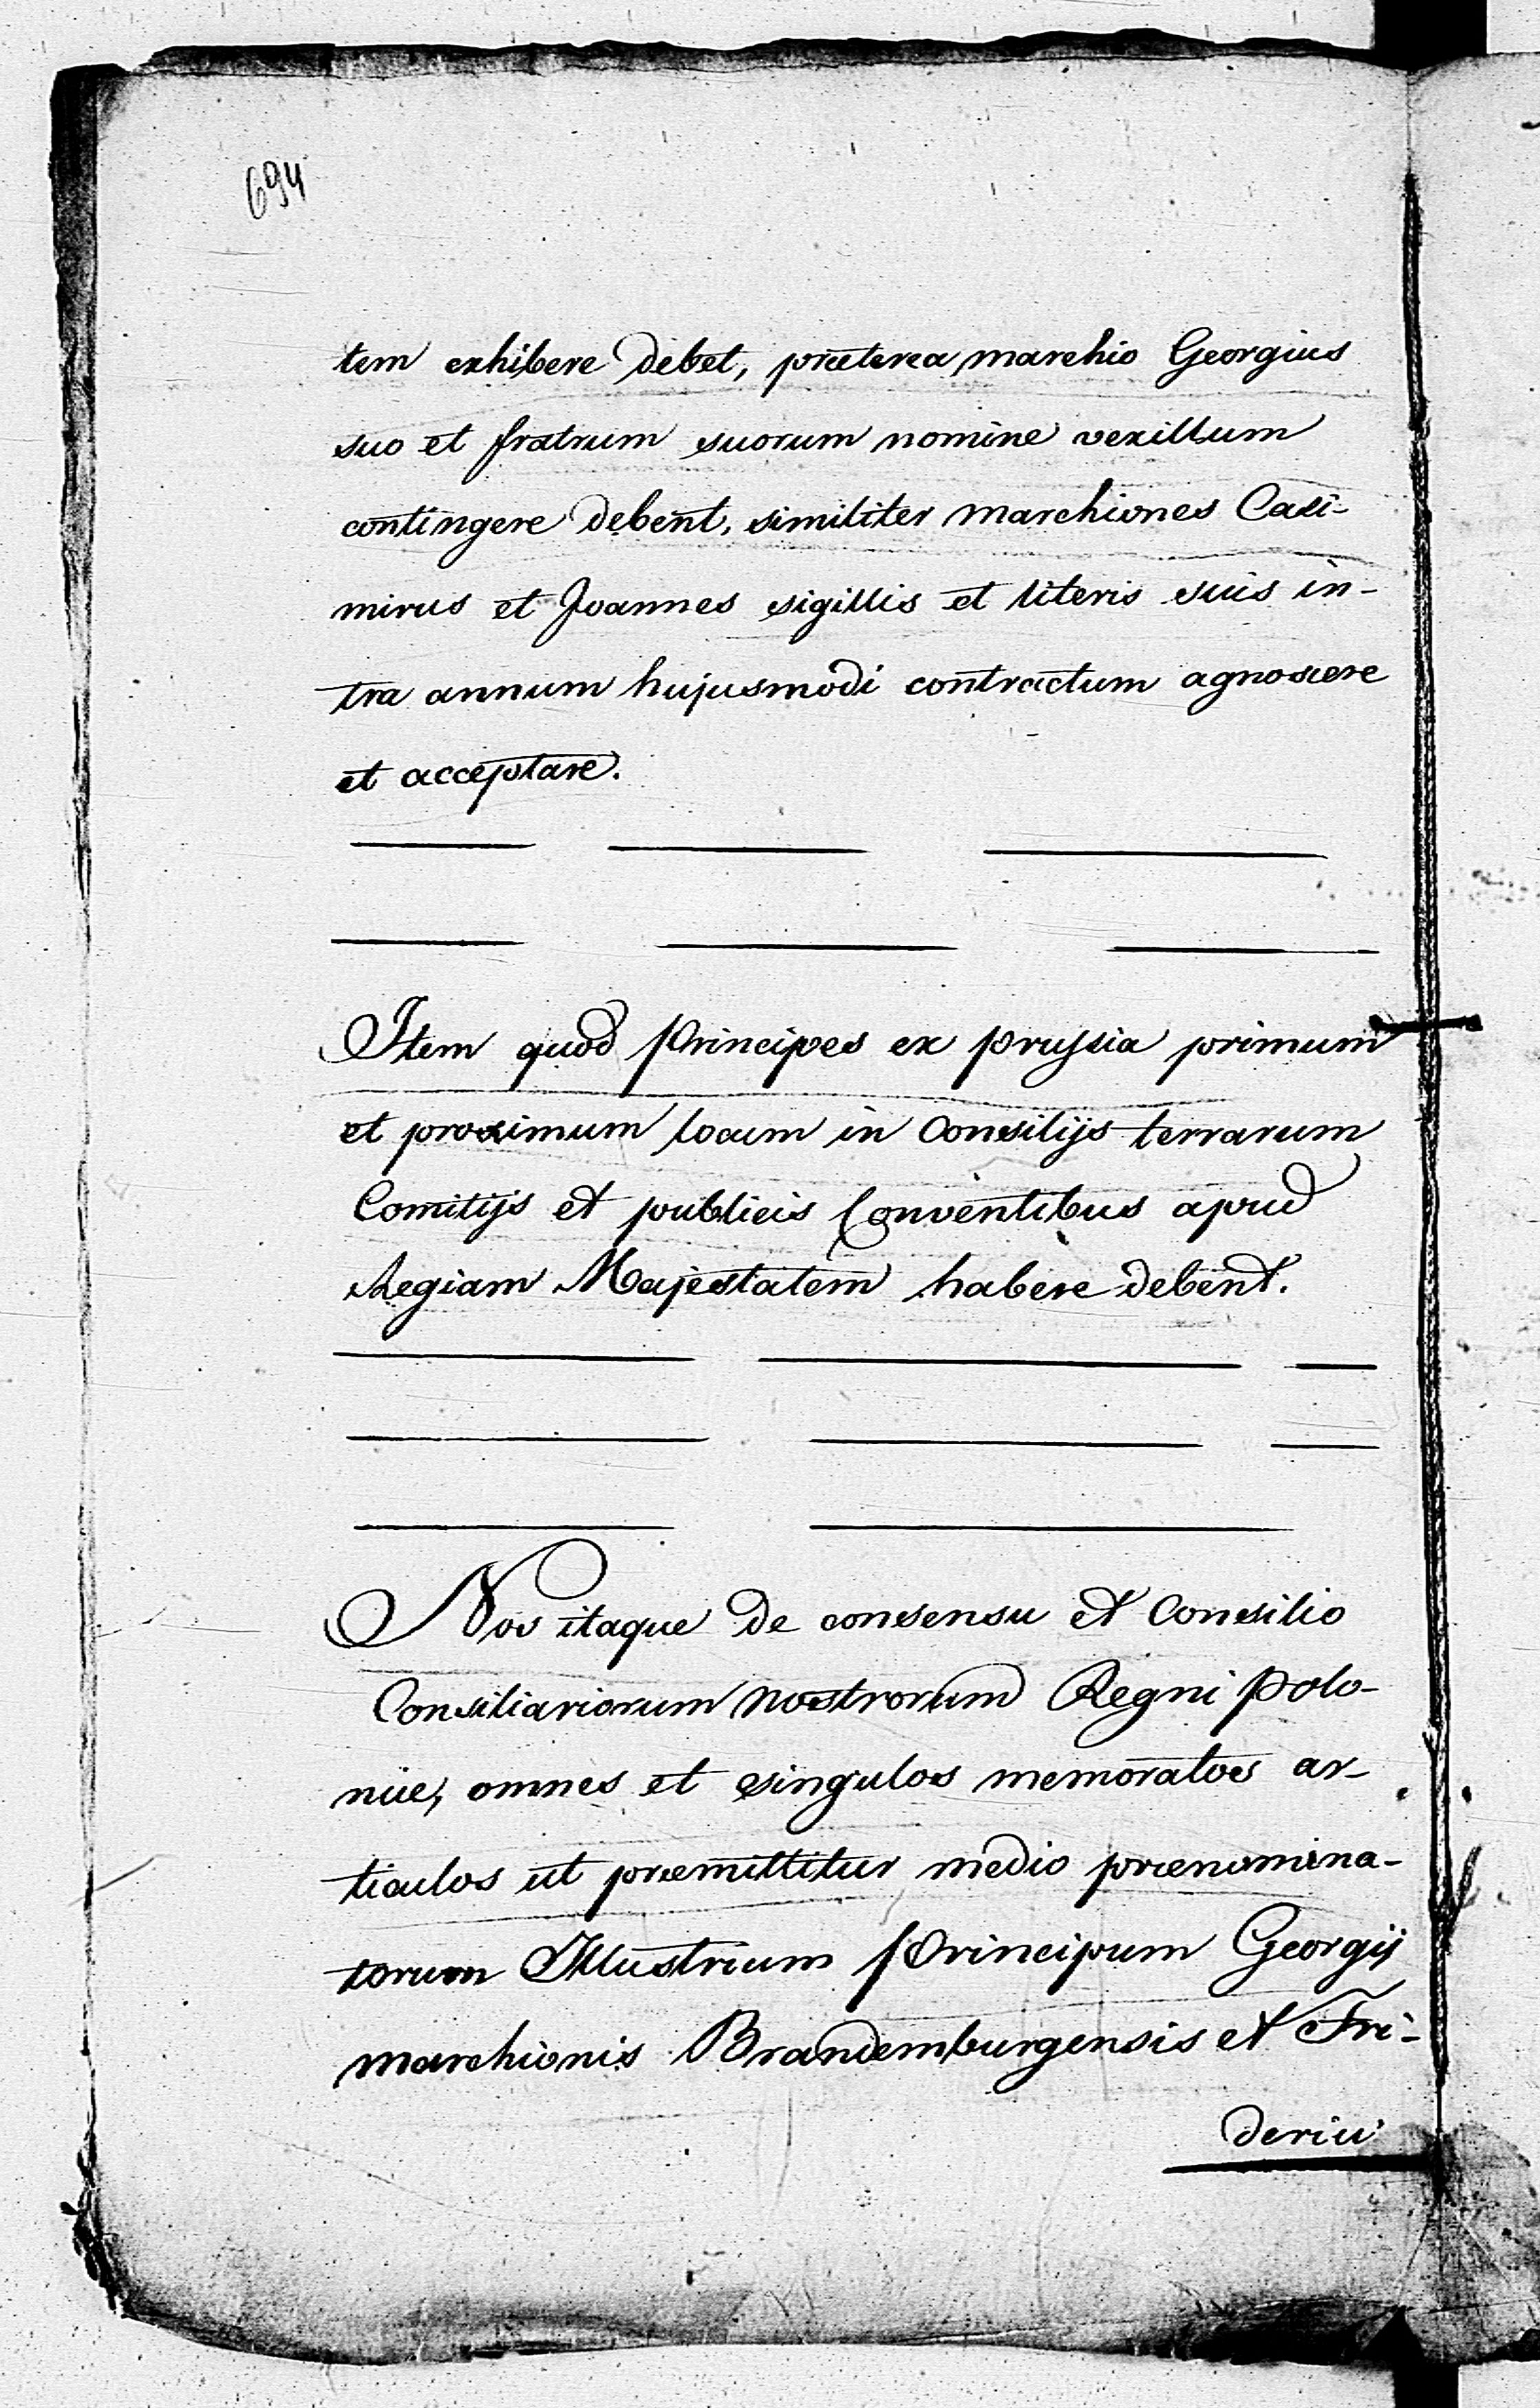 694
tem exhibere debet, præterea marchio Georgius
suo et fratrum suorum nomine vexillum
contingere debent, similiter marchiones Casi-
mirus et Joannes sigillis et literis suis in-
tra annum hujusmodi contractum agnoscere
et acceptare.
Item quod Principes ex Prussia primum
et proximum locum in Consilijs terrarum
Comitijs et publicis Conventibus apud
Regiam Majestatem habere debent.
Nos itaque de consensu et Consilio
Consiliariorum nostrorum Regni Polo-
niæ, omnes et singulos memoratos ar-
ticulos ut præmittitur medio prænomina-
torum Illustrium Principum Georgij
marchionis Brandemburgensis et Fri-
derici